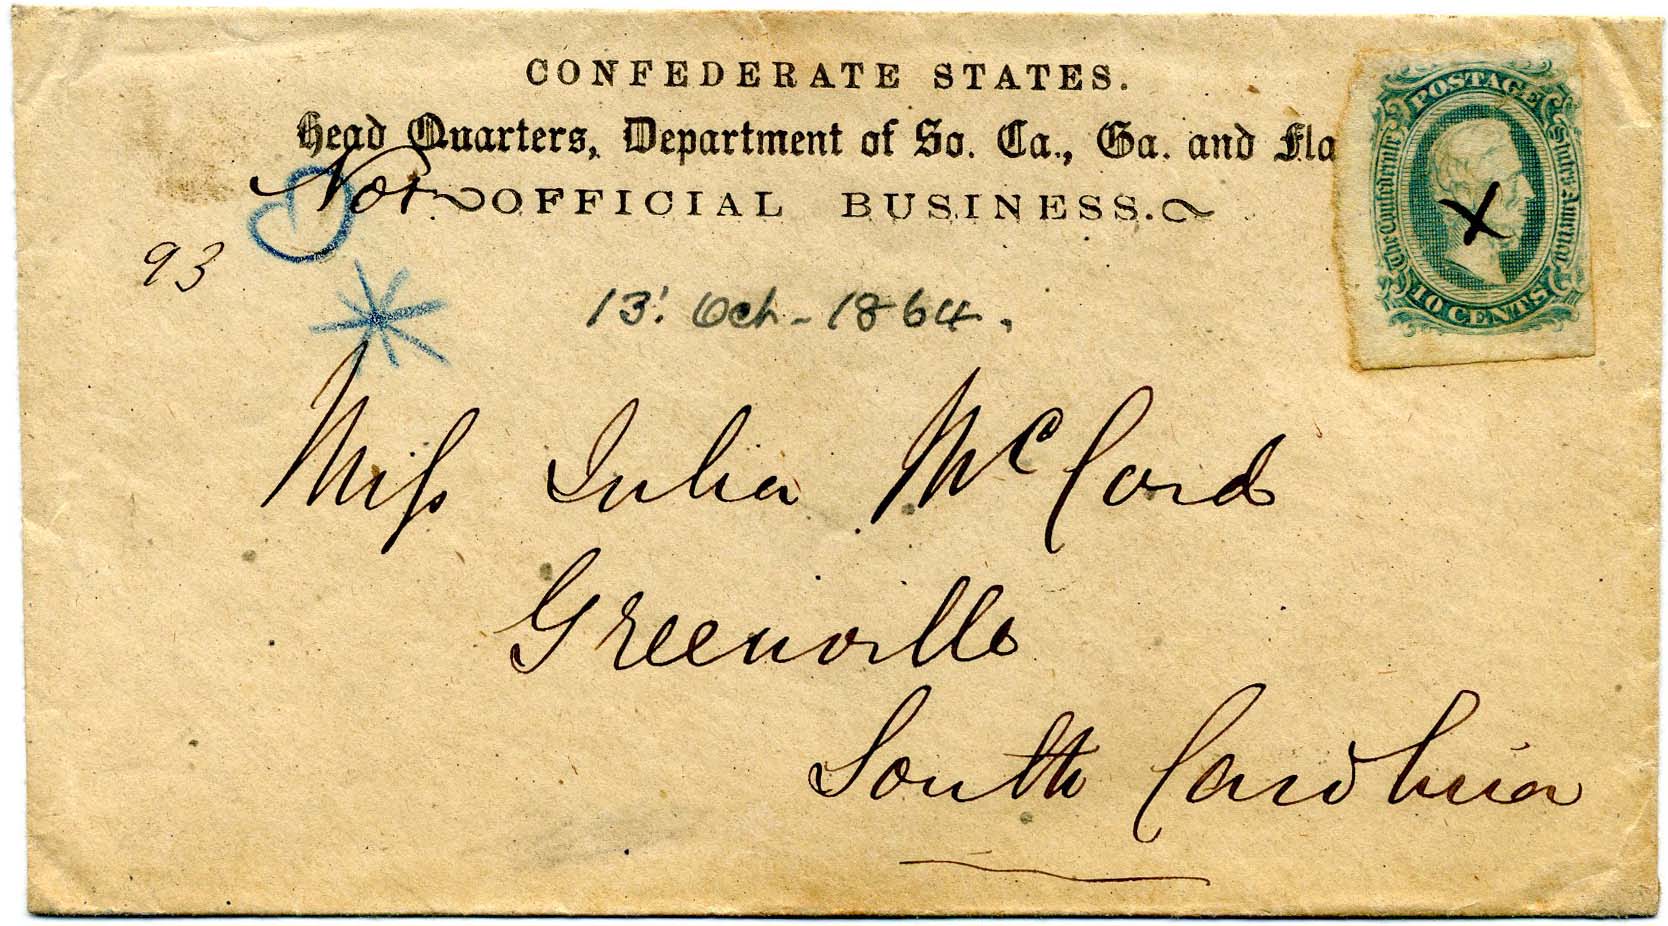 CONFEDERATE STATES.
Head Quarters, Department of So. Ca., Ga. and Fla
Not OFFICIAL BUSINESS.
93
13' Oct - 1864.
POSTAGE
The Confederate States of America
10 CENTS
X
Miſs Julia McCord
Greenville
South Carolina